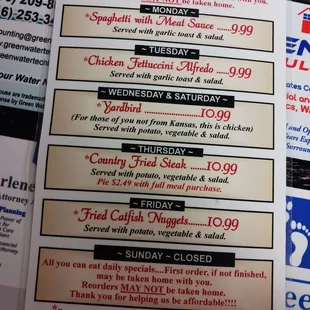 MAY NOT be taken home.
~ MONDAY ~
*Spaghetti with Meat Sauce ......9.99
Served with garlic toast & salad.
~ TUESDAY ~
*Chicken Fettuccini Alfredo .....9.99
Served with garlic toast & salad.
~ WEDNESDAY & SATURDAY ~
*Yardbird ..............10.99
(For those of you not from Kansas, this is chicken)
Served with potato, vegetable & salad.
~ THURSDAY ~
*Country Fried Steak .......10.99
Served with potato, vegetable & salad.
Pie $2.49 with full meal purchase.
~ FRIDAY ~
*Fried Catfish Nuggets......10.99
Served with potato, vegetable & salad.
~ SUNDAY ~ CLOSED
All you can eat daily specials....First order, if not finished,
may be taken home with you.
Reorders MAY NOT be taken home.
Thank you for helping us be affordable!!!!
Attorney
Planning